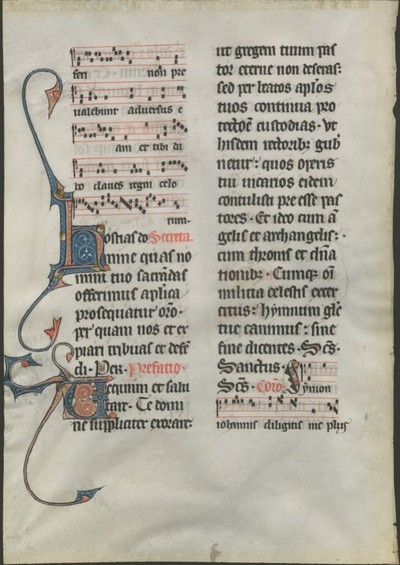 feri non pre
ualebunt aduersus e
am et tibi da
bo claues regni celo
rum.
Hostias do Secreta.
mine quas no
mini tuo sacrãdas
offerimus aplica
prosequatur oro
per quam nos et ex
piari tribuas et deff
di. Per. Prefatio.
Te equum et salu
tare. Te domi
ne suppliciter exorare:
ut gregem tuum pas
tor eterne non deseras:
sed per beatos aplos
tuos continua pro
custodias. Vt
hisdem rectoribz gub
netur: quos operis
tui uicarios eidem
contulisti pre esse pas
tores. Et ideo cum ã
gelis et archangelis:
cum thronis et dña
tionibz. Cumqz oĩ
militia celestis exer
citus: hymnum gle
tue canimus: sine
fine dicentes. Scs.
Sanctus.
Scs. Com Symon
iohannis diligis me plus